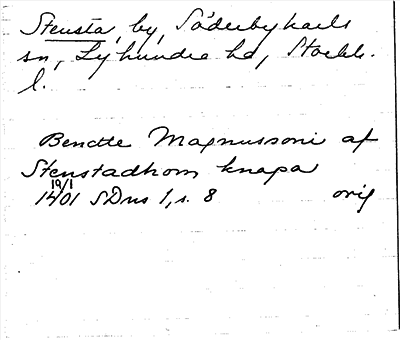 Stensta, by, Söderbykarls
sn, Lyhundra hd, Stockh.
l.
Bencte Magnussoni af
Stenstadhom knapa
19/1
1401 SDns 1, s. 8 orig